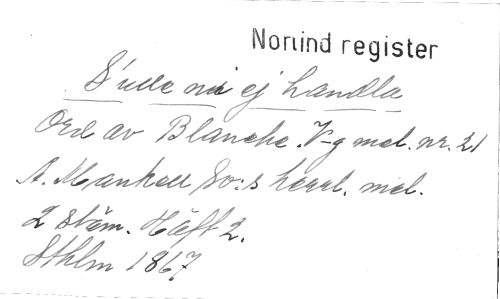 Norlind register
S'ulle ni ej handla
Ord av Blanche. V-g mel. nr. 21
A. Mankell 80:s häfl. mel.
2 stäm. Häft 2.
Sthlm 1867